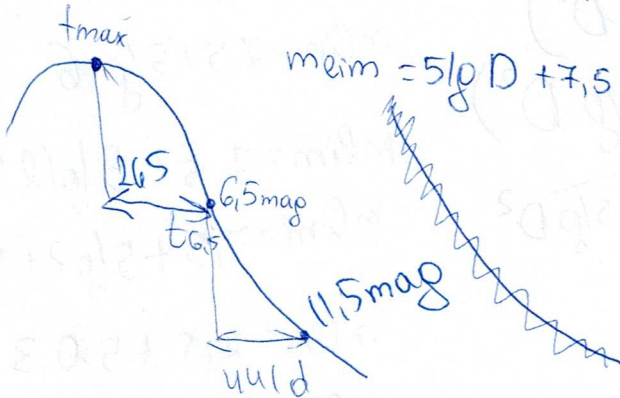 tmax
mlim = 5lg D + 7,5
265
6,5mag
t6,5
11,5mag
441d